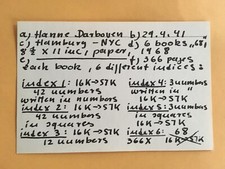 a) Hanne Darboven b) 29.4.41
c) Hamburg - NYC d) 6 books "68"
8 ½ X 11 inc, paper, 1968
e) f) 366 pages
each book, 6 different indices:
index 1: 16K→57K
42 numbers
written in numbers
index 2: 16K→57K
42 numbers
index 3: 16K→57K
12 numbers
index 4: 3 numbers
written in "
16K→57K
index 5: 3 numbers
in 16K→57K
index 6: 68
366X 16K→57K